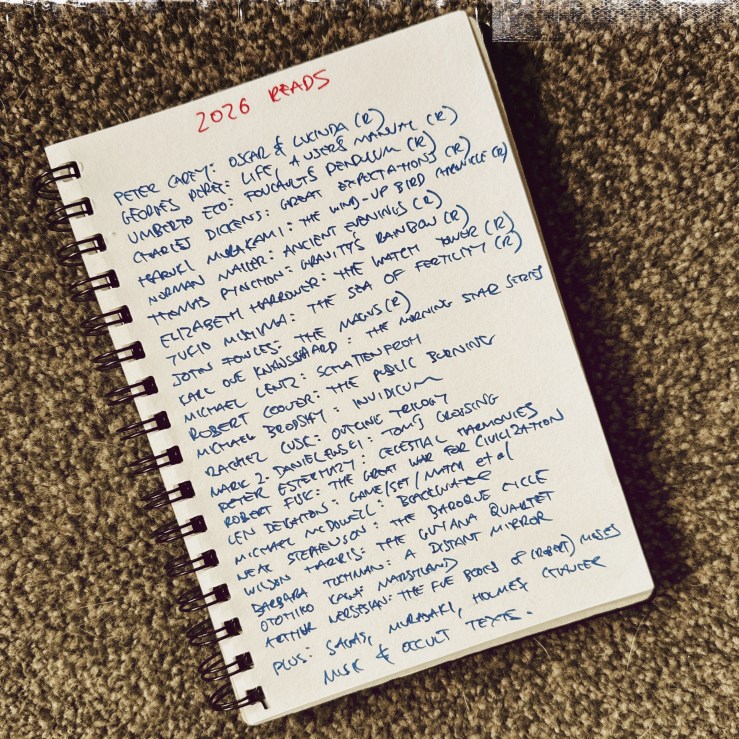 2026 READS
PETER CAREY: OSCAR & LUCINDA (R)
GEORGES PEREC: LIFE, A USER'S MANUAL (R)
UMBERTO ECO: FOUCAULT'S PENDULUM (R)
CHARLES DICKENS: GREAT EXPECTATIONS (R)
HARUKI MURAKAMI: THE WIND-UP BIRD CHRONICLE (R)
NORMAN MAILER: ANCIENT EVENINGS (R)
THOMAS PYNCHON: GRAVITY'S RAINBOW (R)
ELIZABETH HARROWER: THE WATCH TOWER (R)
YUKIO MISHIMA: THE SEA OF FERTILITY (R)
JOHN FOWLES: THE MAGUS (R)
KARL OVE KNAUSGAARD: THE MORNING STAR SERIES
MICHAEL LENTZ: SCHATTENFROH
ROBERT COOVER: THE PUBLIC BURNING
MICHAEL BRODSKY: INVIDICUM
RACHEL CUSK: OUTLINE TRILOGY
MARK Z. DANIELEWSKI: TOM'S CROSSING
PETER ESTERHAZY: CELESTIAL HARMONIES
ROBERT FISK: THE GREAT WAR FOR CIVILIZATION
LEN DEIGHTON: GAME/SET/MATCH et al
MICHAEL McDOWELL: BLACKWATER
NEAL STEPHENSON: THE BAROQUE CYCLE
WILSON HARRIS: THE GUYANA QUARTET
BARBARA TUCHMAN: A DISTANT MIRROR
OTOHIKO KAGA: MARSHLAND
ARTHUR NERSESIAN: THE FIVE BOOKS OF (ROBERT) MOSES
PLUS: SAGAS, MURASAKI, HOLMES, CHAUCER
MUSK & OCCULT TEXTS.